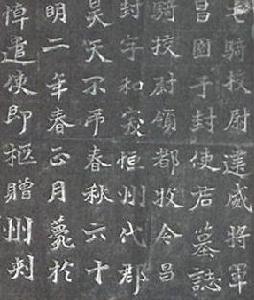 屯騎校尉建威將軍
昌國子封使君墓誌
騎校尉領都牧令昌
封字和突恒州代郡
昊天不弔春秋六十
明二年春正月薨於
悼遣使即柩贈州刺